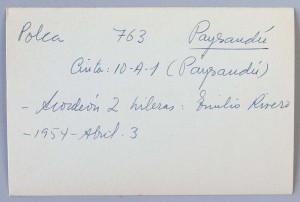 Polca 763 Paysandú
Cinta: 10-A-1 (Paysandú)
- Acordeón 2 hileras: Emilio Rivero
- 1954 - Abril - 3